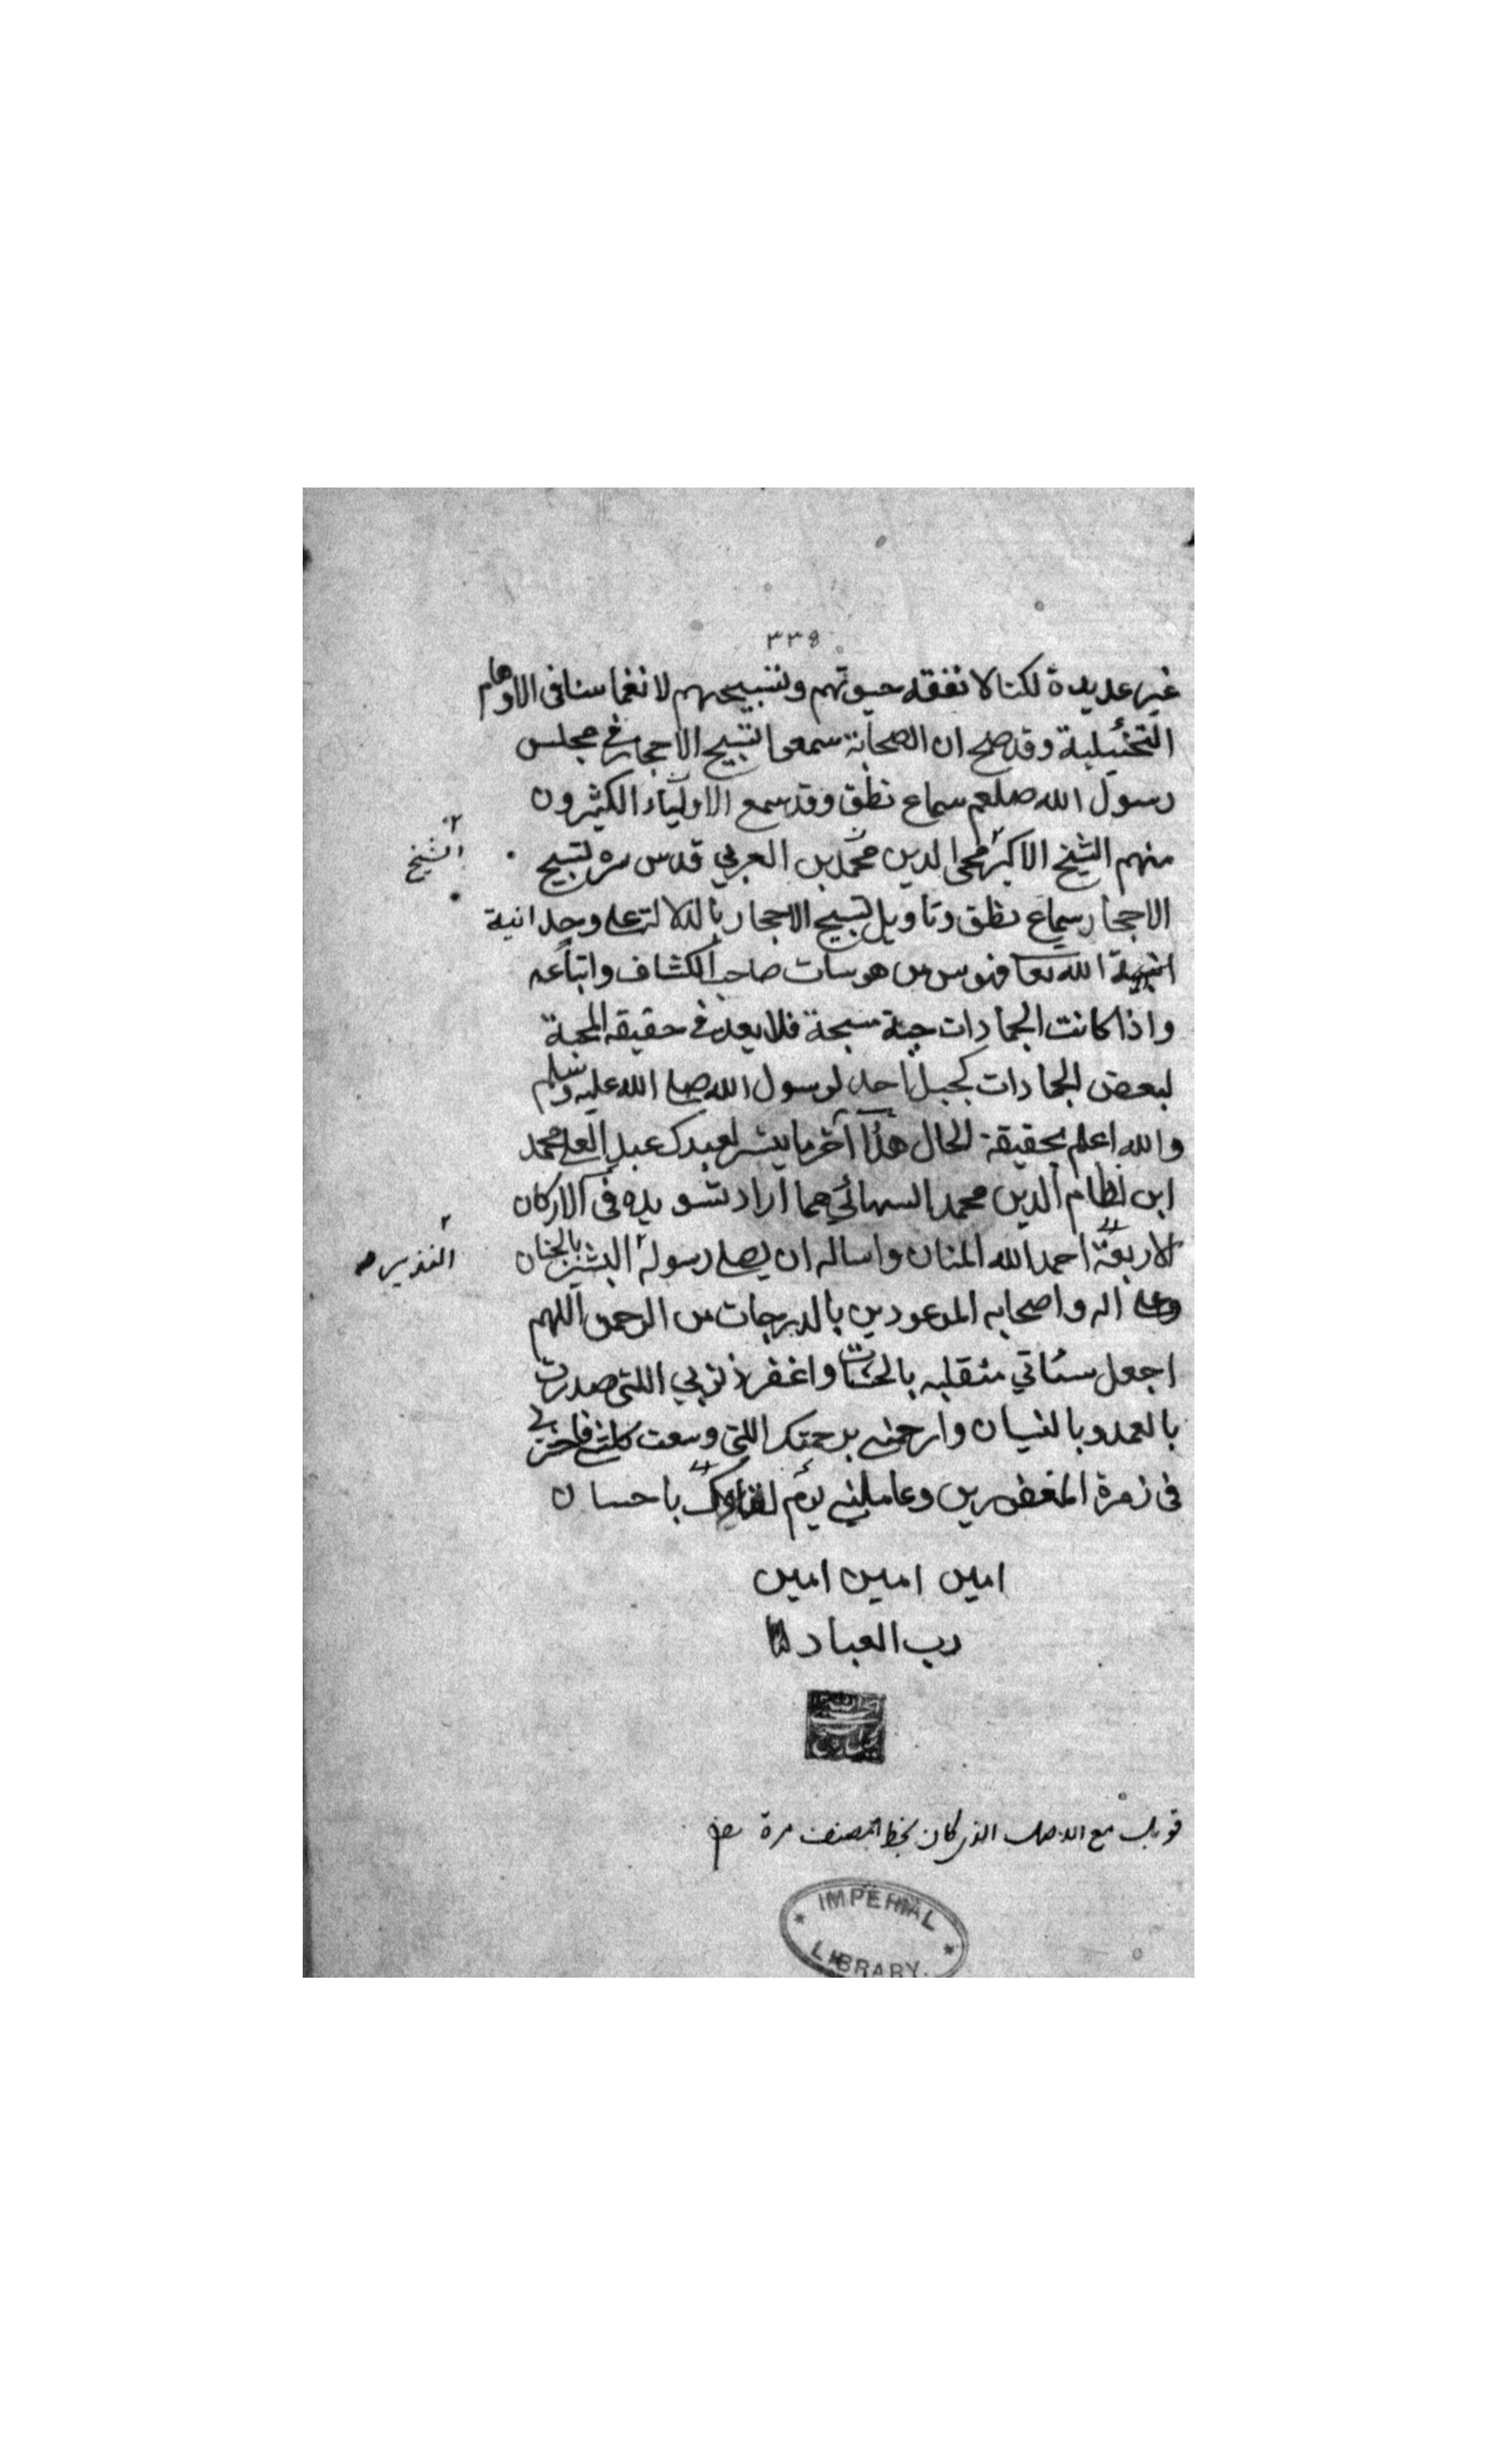 ٣٣٥
غير عديدة لكنا لا نفقه حيوتهم وتسبيحهم لانغماسنا فى الاوهام
التخئيلية وقد صح ان الصحابة سمعوا تسبيح الاحجار فى مجلس
رسول الله صلعم سماع نطق وقد سمع الاولياء الكثيرون
منهم الشيخ الاكبر محى الدين محمد بن العربي قدس سره تسبيح
الشيخ
الاحجار سماع نطق وتاويل تسبيح الاحجار بالدلالة على وحدانية
الله تعا فهوس من هوسات صاحب الكشاف واتباعه
واذا كانت الجمادات حية مسبحة فلا بعد فى حقيقة المحبة
لبعض الجمادات كجبل احد لرسول الله صلى الله عليه وسلم
والله اعلم بحقيقة الحال هذا آخر ما يتسر لعبدك عبد العلى محمد
ابن نظام الدين محمد السهالي مما اراد تسويده فى الاركان
الاربعة احمد الله المنان واساله ان يصلى رسوله البشير بالجنان
النذير صح
وعلى اله واصحابه الموعودين بالدرجات من الرحمن اللهم
اجعل سئاتي منقلبه بالحسنات واغفر ذنوبي اللتى صدرت
بالعمد وبالنسيان وارحمنى برحمتك اللتى وسعت كل شئ فاحشرنى
فى زمرة المغفورين وعاملنى يوم لقاوك باحسان
امين امين امين
رب العباد
قوبل مع الاصل الذى كان بخط المصنف مرة
IMPERIAL
LIBRARY.